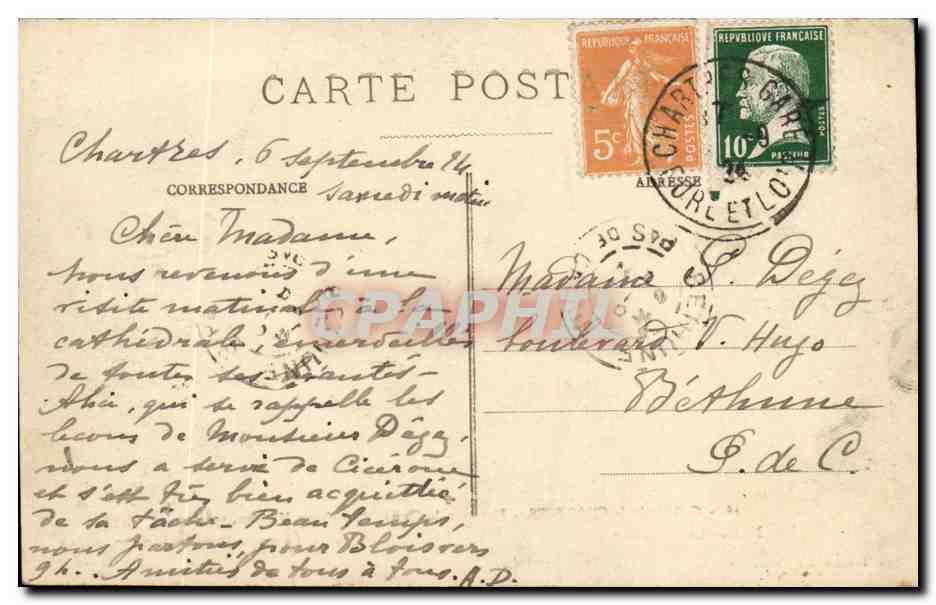 CARTE POST
REPUBLIQUE FRANÇAISE
5c
POSTES
REPVBLIQVE FRANÇAISE
10c
POSTES
PASTEUR
CHARTRES GARE
EURE ET LOIR
Chartres, 6 septembre 24
CORRESPONDANCE
ADRESSE
samedi matin
Chère Madame,
nous revenons d'une
visite matinale à la
cathédrale, émerveillés
de toutes ses beautés -
Alice, qui se rappelle les
leçons de Monsieur Dégez,
nous a servi de Cicérone
et s'est très bien acquittée
de sa tâche - Beau temps,
nous partons pour Blois vers
9h. Amitiés de tous à tous. A.D.
PAS DE
BETHUNE
CPAPHIL
Madame P. Dégez
boulevard V. Hugo
Béthune
P. de C.